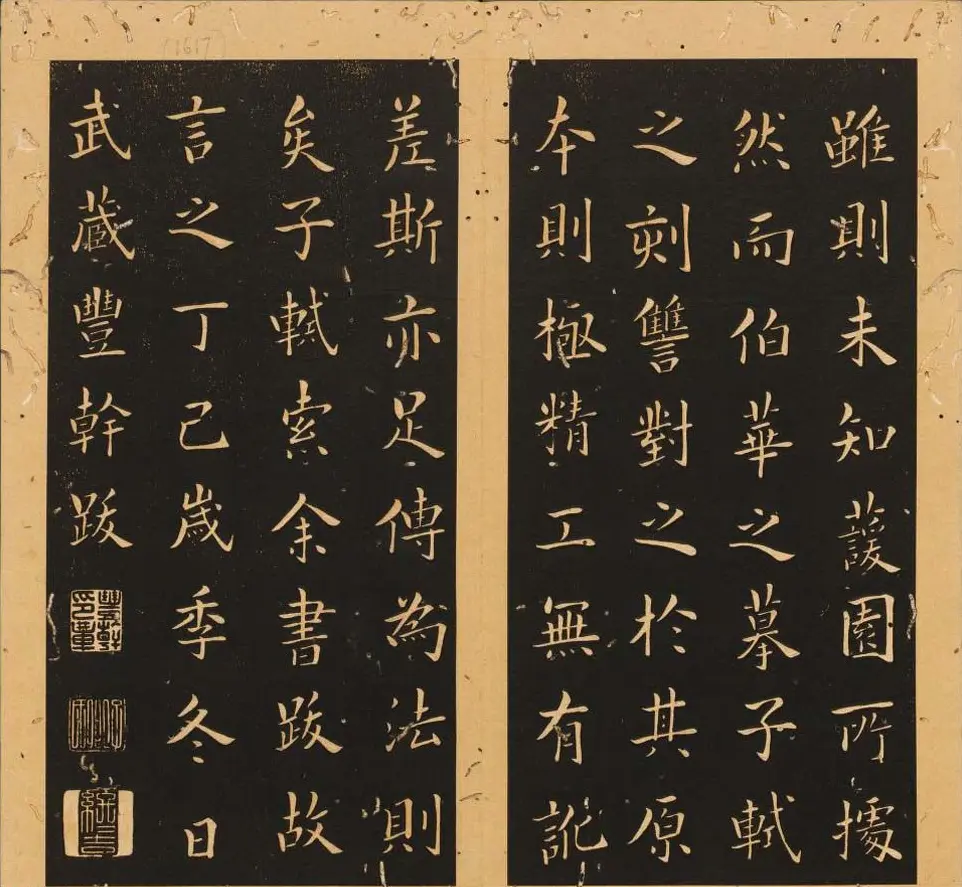 雖則未知蘐園所據
然而伯華之摹子軾
之刻讐對之於其原
本則極精工無有訛
差斯亦足傳為法則
矣子軾索余書跋故
言之丁己歲季冬日
武藏豐幹跋
(1617)